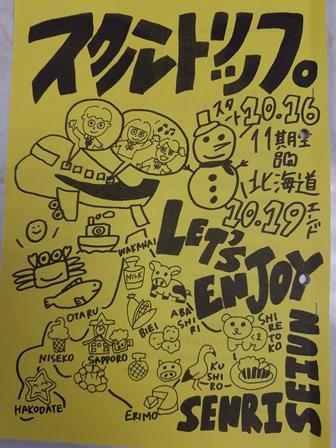 スクールトリップ。
スタート10.16
11期生
in
北海道
10.19エンド
LET'S
ENJOY
WAKANAI
MILK
OTARU
ABASHIRI
BIEI
SHIRETOKO
NISEKO
SAPPORO
KUSHIRO
HAKODATE
ERIMO
SENRI
SEIUN